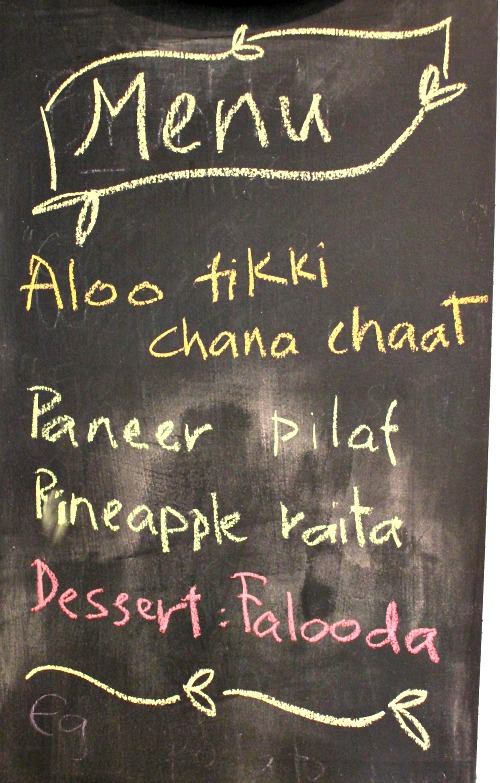 Menu
Aloo tikki
chana chaat
Paneer pilaf
Pineapple raita
Dessert : Falooda